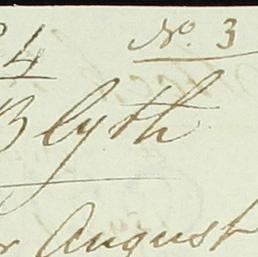 4 No. 3
Blyth
August